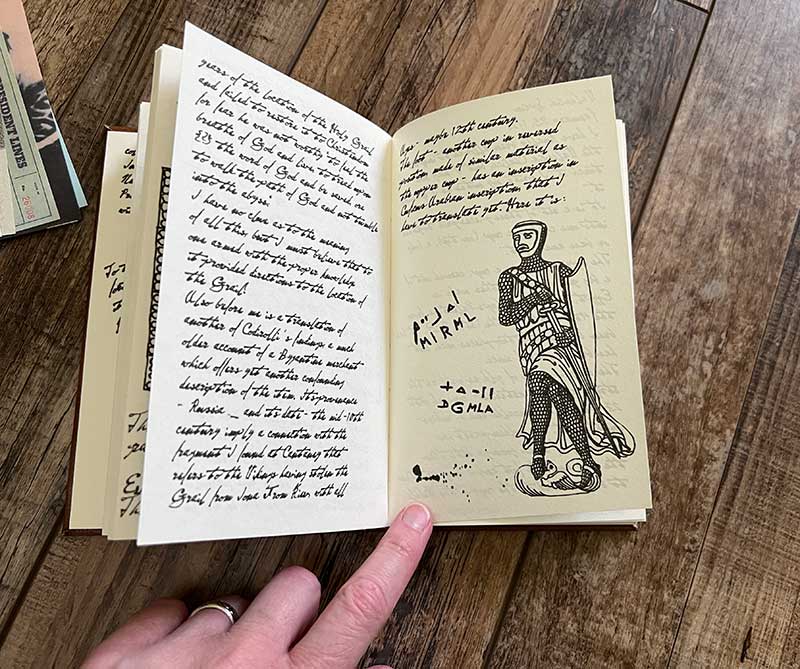 PRESIDENT LINES
years of the location of the Holy Grail
and failed to restore it to Christendom
for fear he was not worthy to feel the
breathe of God and live to tread upon
the word of God and be saved, or
to walk the path of God and not tumble
into the abyss.
I have no clue as to the meaning
of all this, but I must believe that to
one armed with the proper knowledge
it provided directions to the location of
the Grail.
Also before me is a translation of
another of findings a much
older account of a Byzantine merchant
which offers yet another confounding
description of the item. Its provenance
- Russia - and its date - the mid-10th
century imply a connection with the
fragment I found at that
refers to the Vikings having stolen the
Grail from Iona. From Kiev with all
- maybe 12th century.
The foot - another cup in reversed
position made of similar material as
the upper cup - has an inscription in
Arabian inscription that I
have to translate yet. Here it is:
MIRML
DGMLA